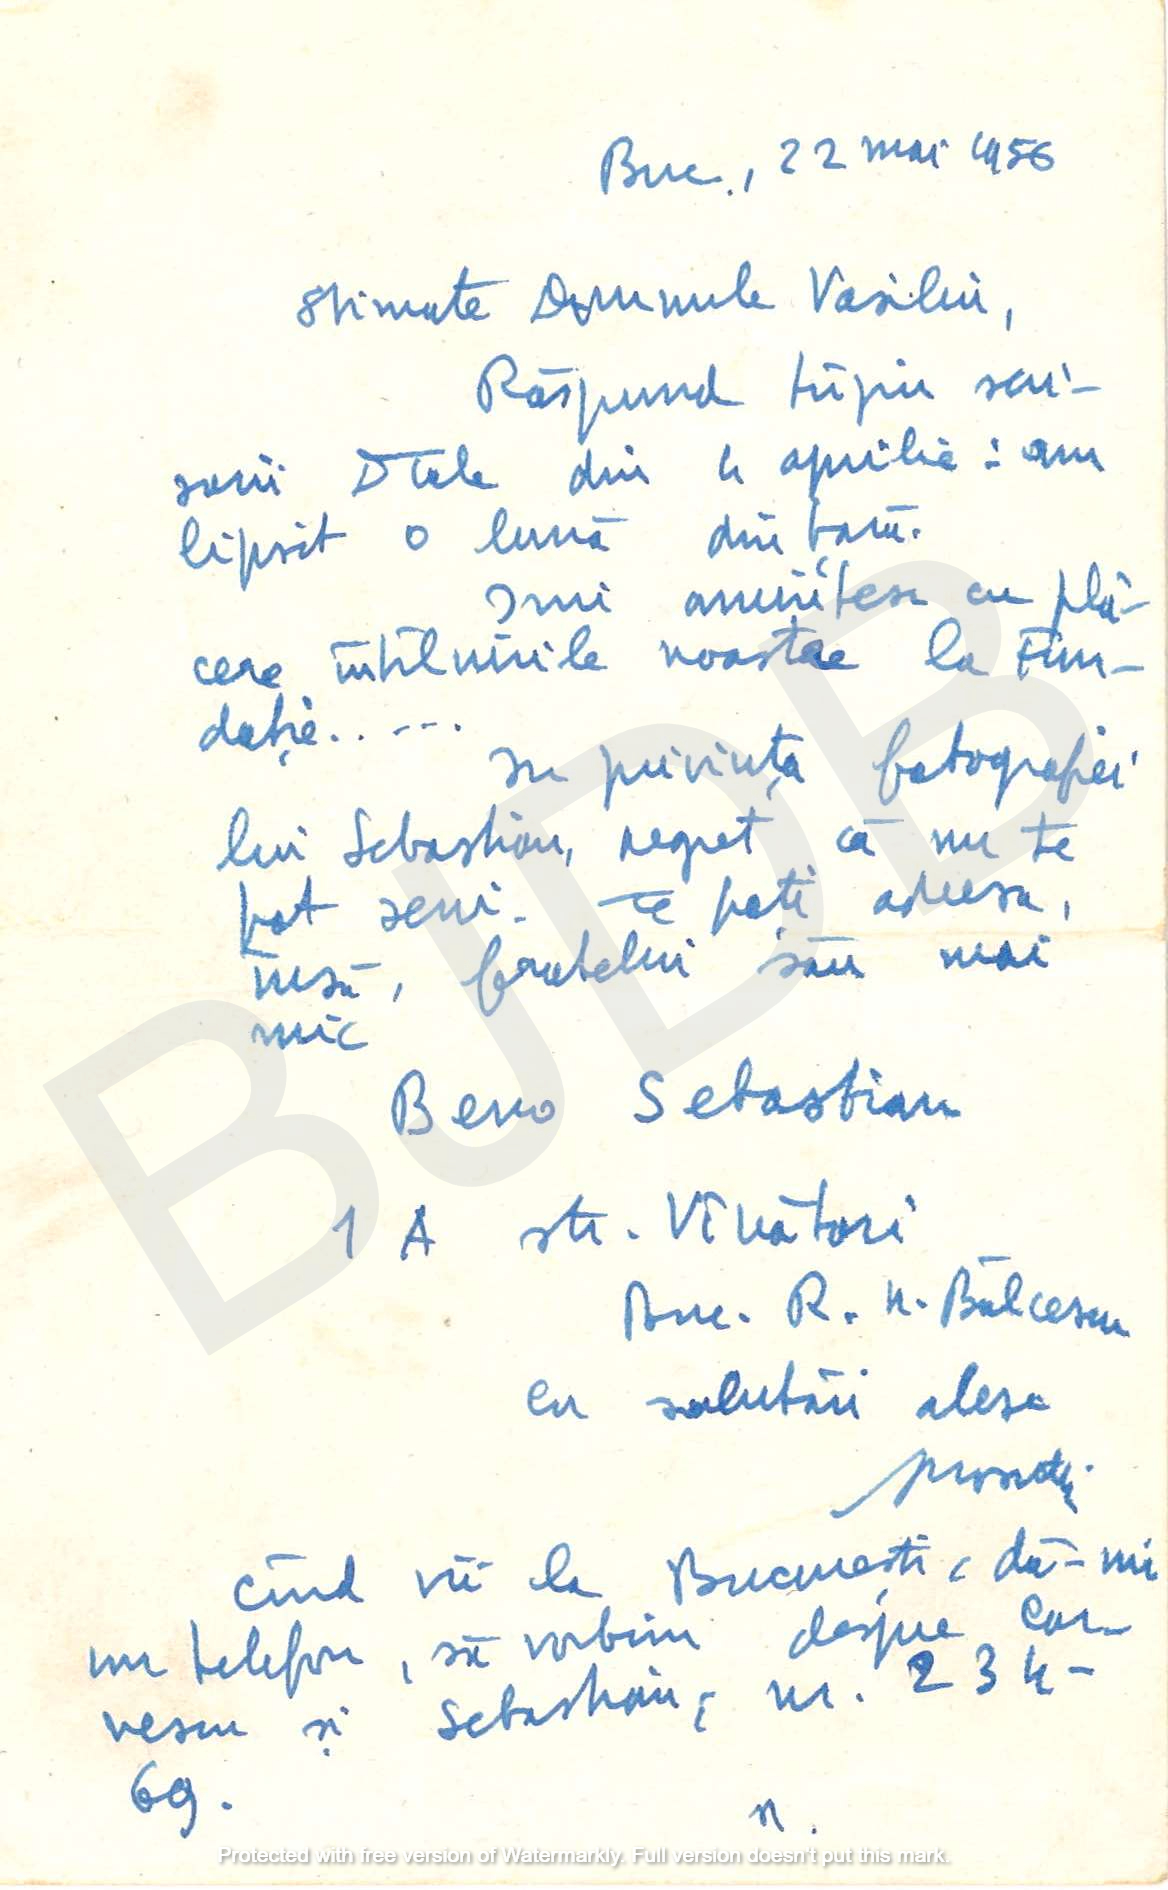 Buc., 22 mai 1956
Stimate Domnule Vasiliu,
Răspund tîrziu scri-
sorii Dtale din 4 aprilie: am
lipsit o lună din țară.
Îmi amintesc cu plă-
cere întîlnirile noastre la Fun-
dație.. ---.
În privința fotografiei
lui Sebastian, regret că nu te
pot servi. Te poți adresa,
însă, fratelui său mai
mic
Beno Sebastian
1 A str. Vînători
Buc. R. N. Bălcescu
Cu salutări alese
Cînd vii la București, dă-mi
un telefon, să vorbim despre Cor-
vescu și Sebastian, nr. 234-
69.
BJDB
Protected with free version of Watermarkly. Full version doesn't put this mark.